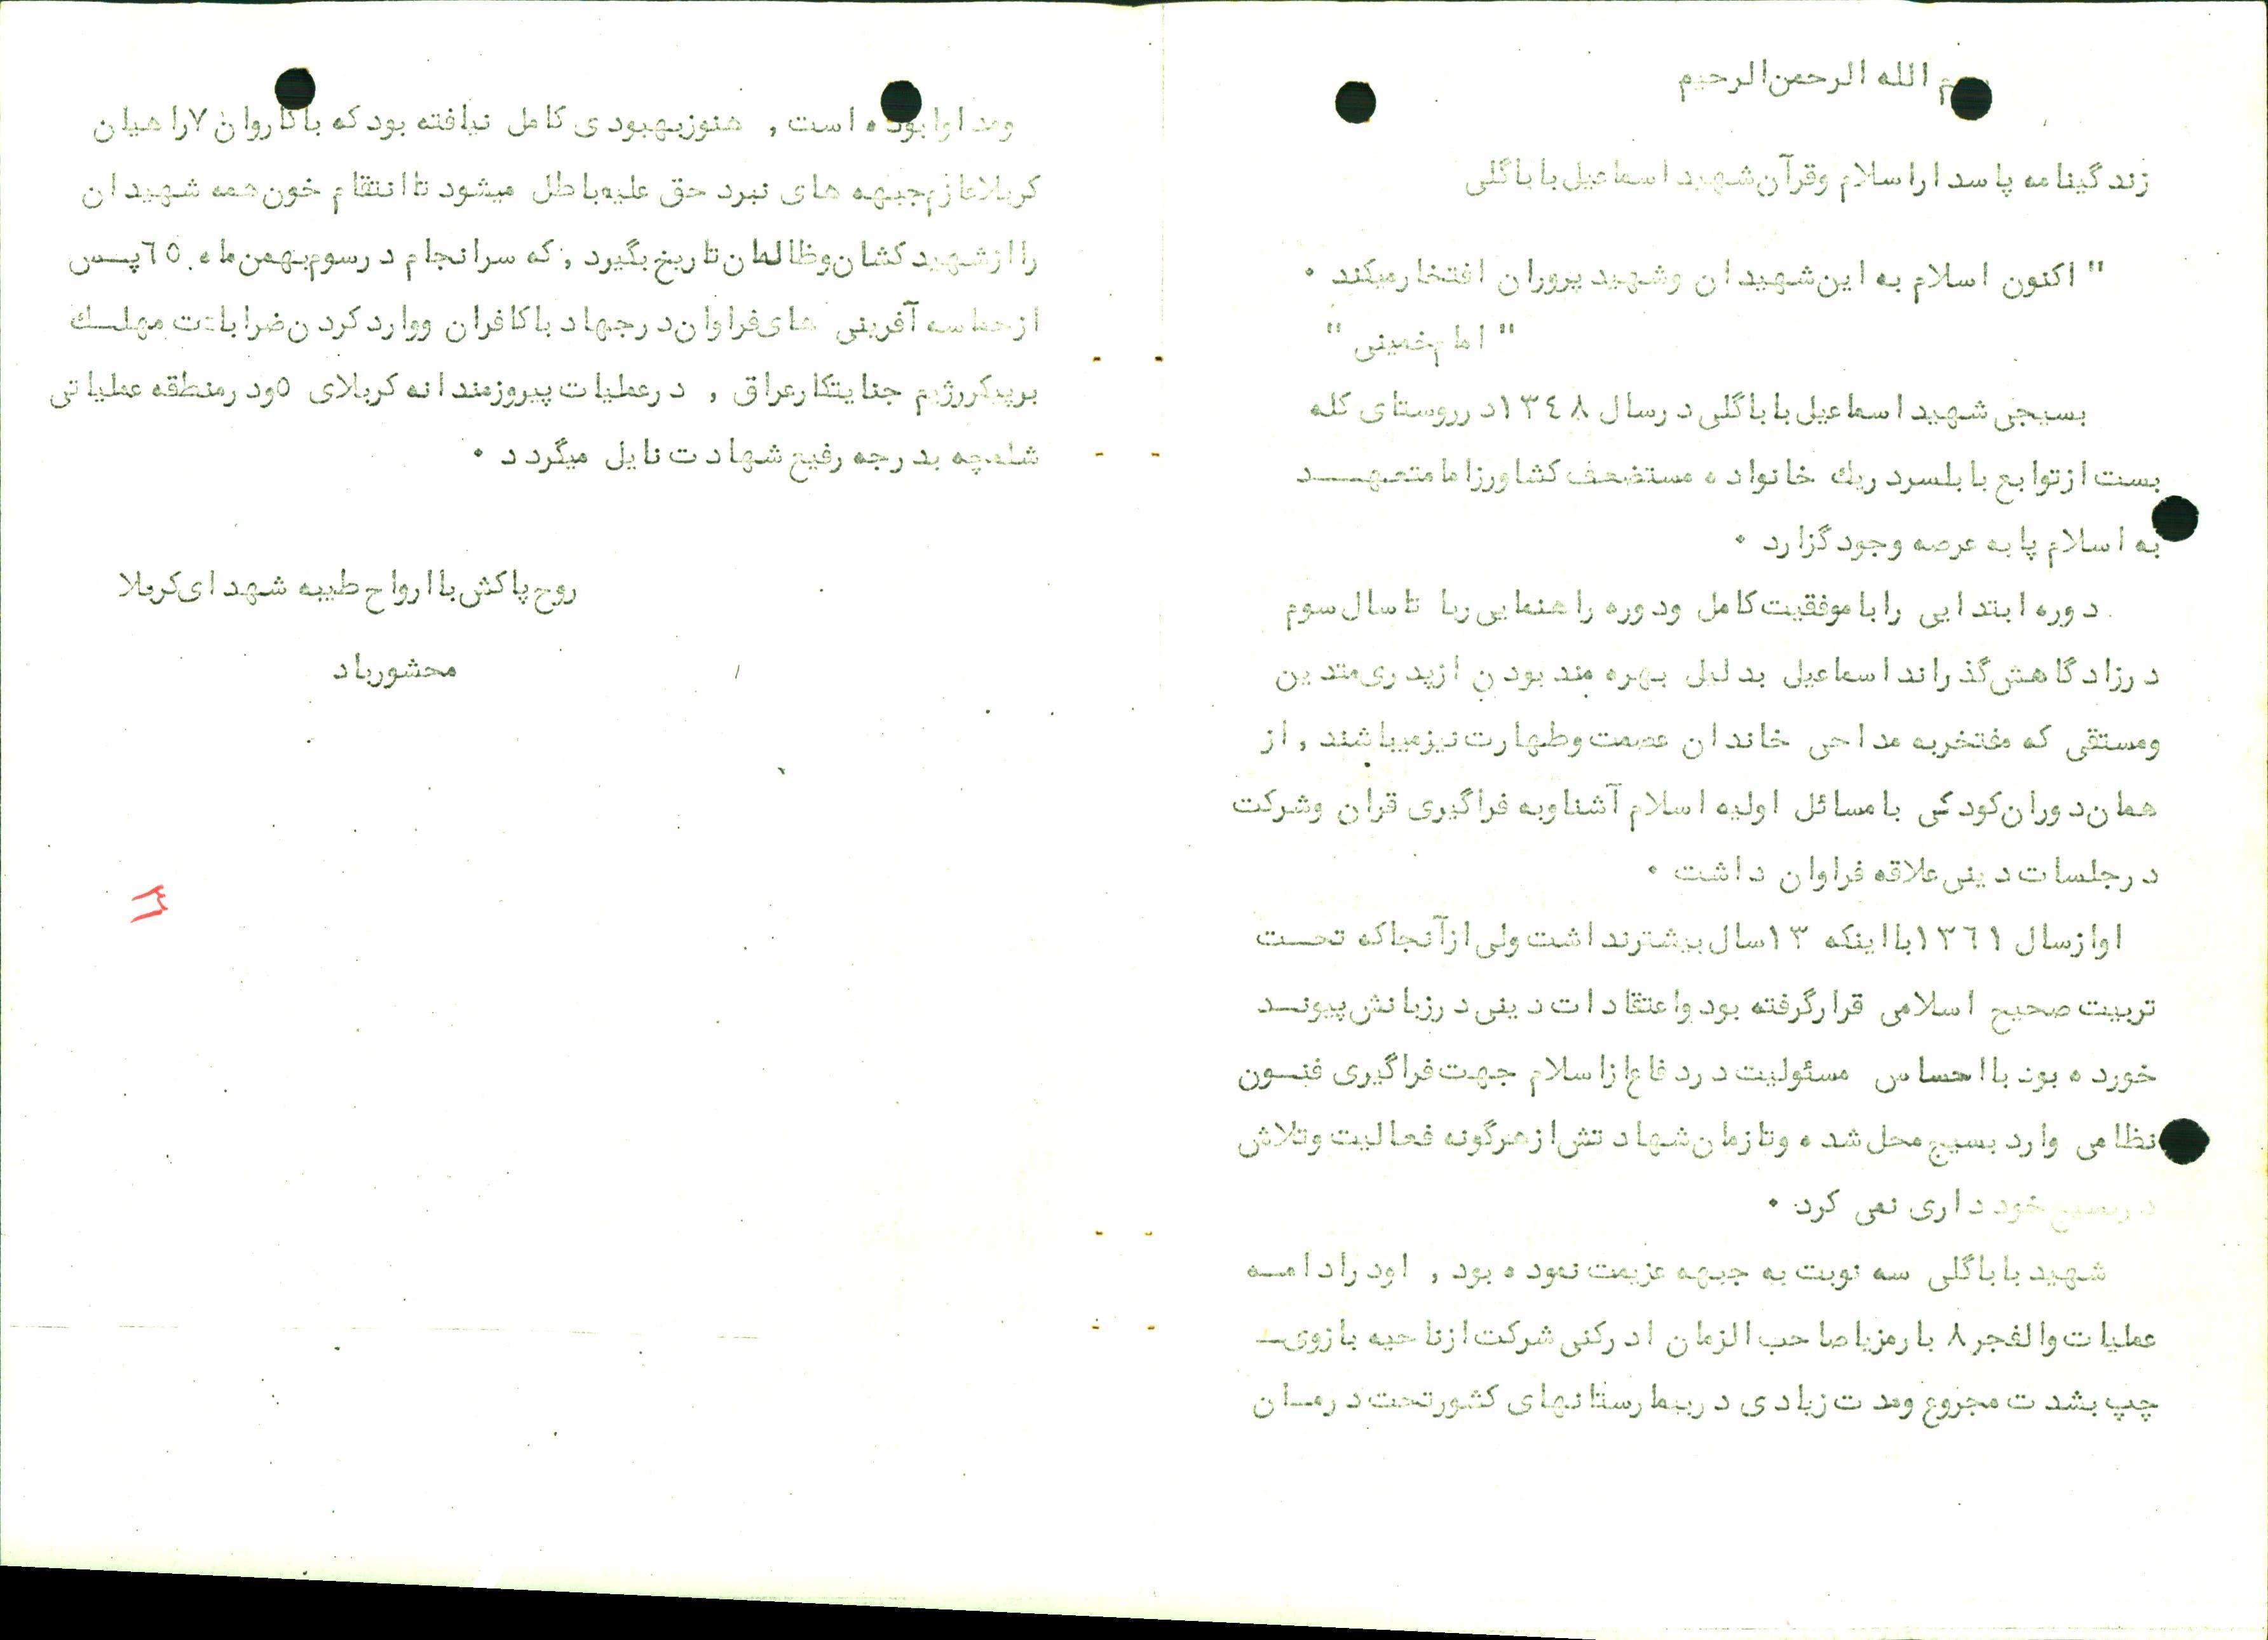 بسم الله الرحمن الرحیم
زندگینامه پاسدار اسلام وقرآن شهید اسماعیل باباگلی
" اکنون اسلام به این شهیدان وشهید پروران افتخار میکند ۰
" امام خمینی "
بسیجی شهید اسماعیل باباگلی در سال ۱۳۴۸ در روستای کله
بست از توابع بابلسر در یک خانواده مستضعف کشاورز اما متعهد
به اسلام پا به عرصه وجود گزارد ۰
دوره ابتدایی را با موفقیت کامل ودوره راهنمایی را تا سال سوم
در زادگاهش گذراند اسماعیل بدلیل بهره مند بودن از پدری متدین
ومستقی که مفتخر به مداحی خاندان عصمت وطهارت نیز میباشند , از
همان دوران کودکی با مسائل اولیه اسلام آشنا وبه فراگیری قران وشرکت
در جلسات دینی علاقه فراوان داشت ۰
او از سال ۱۳۶۱ با اینکه ۱۳ سال بیشتر نداشت ولی از آنجا که تحت
تربیت صحیح اسلامی قرار گرفته بود واعتقادات دینی در زبانش پیوند
خورده بود با احساس مسئولیت در دفاع از اسلام جهت فراگیری فنون
نظامی وارد بسیج محل شده وتا زمان شهادتش از هرگونه فعالیت وتلاش
در بسیج خودداری نمی کرد ۰
شهید باباگلی سه نوبت به جبهه عزیمت نموده بود , او در ادامه
عملیات والفجر ۸ با رمز یا صاحب الزمان ادرکنی شرکت از ناحیه بازوی
چپ بشدت مجروع ومدت زیادی در بیمارستانهای کشور تحت درمان
ومداوا بوده است , هنوز بهبودی کامل نیافته بود که با کاروان ۷ راهیان
کربلا عازم جبهه های نبرد حق علیه باطل میشود تا انتقام خون همه شهیدان
را از شهید کشان وظالمان تاریخ بگیرد , که سرانجام در سوم بهمن ماه ۶۵ پس
از حماسه آفرینی های فراوان در جهاد با کافران ووارد کردن ضرابات مهلک
بر پیکر رژیم جنایتکار عراق , در عملیات پیروزمندانه کربلای ۵ ودر منطقه عملیاتی
شلمچه بدرجه رفیع شهادت نایل میگردد ۰
روح پاکش با ارواح طیبه شهدای کربلا
محشور باد